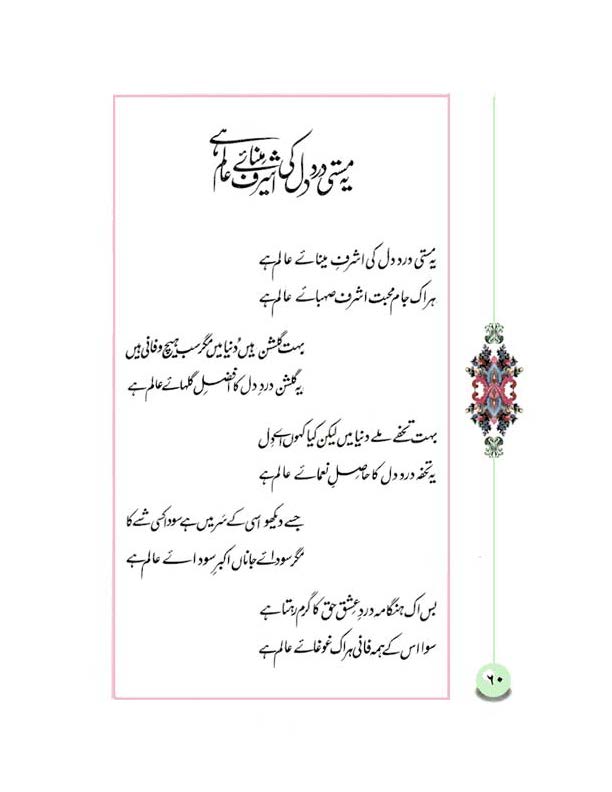 یہ مستی دردِ دل کی اشرفِ مینائے عالم ہے
یہ مستی درد دل کی اشرفِ مینائے عالم ہے
ہر اک جام محبت اشرف صہبائے عالم ہے
بہت گلشن ہیں دُنیا میں مگر سب ہیچ و فانی ہیں
یہ گلشن دردِ دل کا افضلِ گلہائے عالم ہے
بہت تحفے ملے دنیا میں لیکن کیا کہوں اے دل
یہ تحفہ درد دل کا حاصلِ نعمائے عالم ہے
جسے دیکھو اسی کے سَر میں ہے سودا کسی شے کا
مگر سودائے جاناں اکبرِ سودائے عالم ہے
بس اک ہنگامہ دردِ عِشق حق کا گرم رہتا ہے
سوا اس کے ہمہ فانی ہر اک غوغائے عالم ہے
۶۰